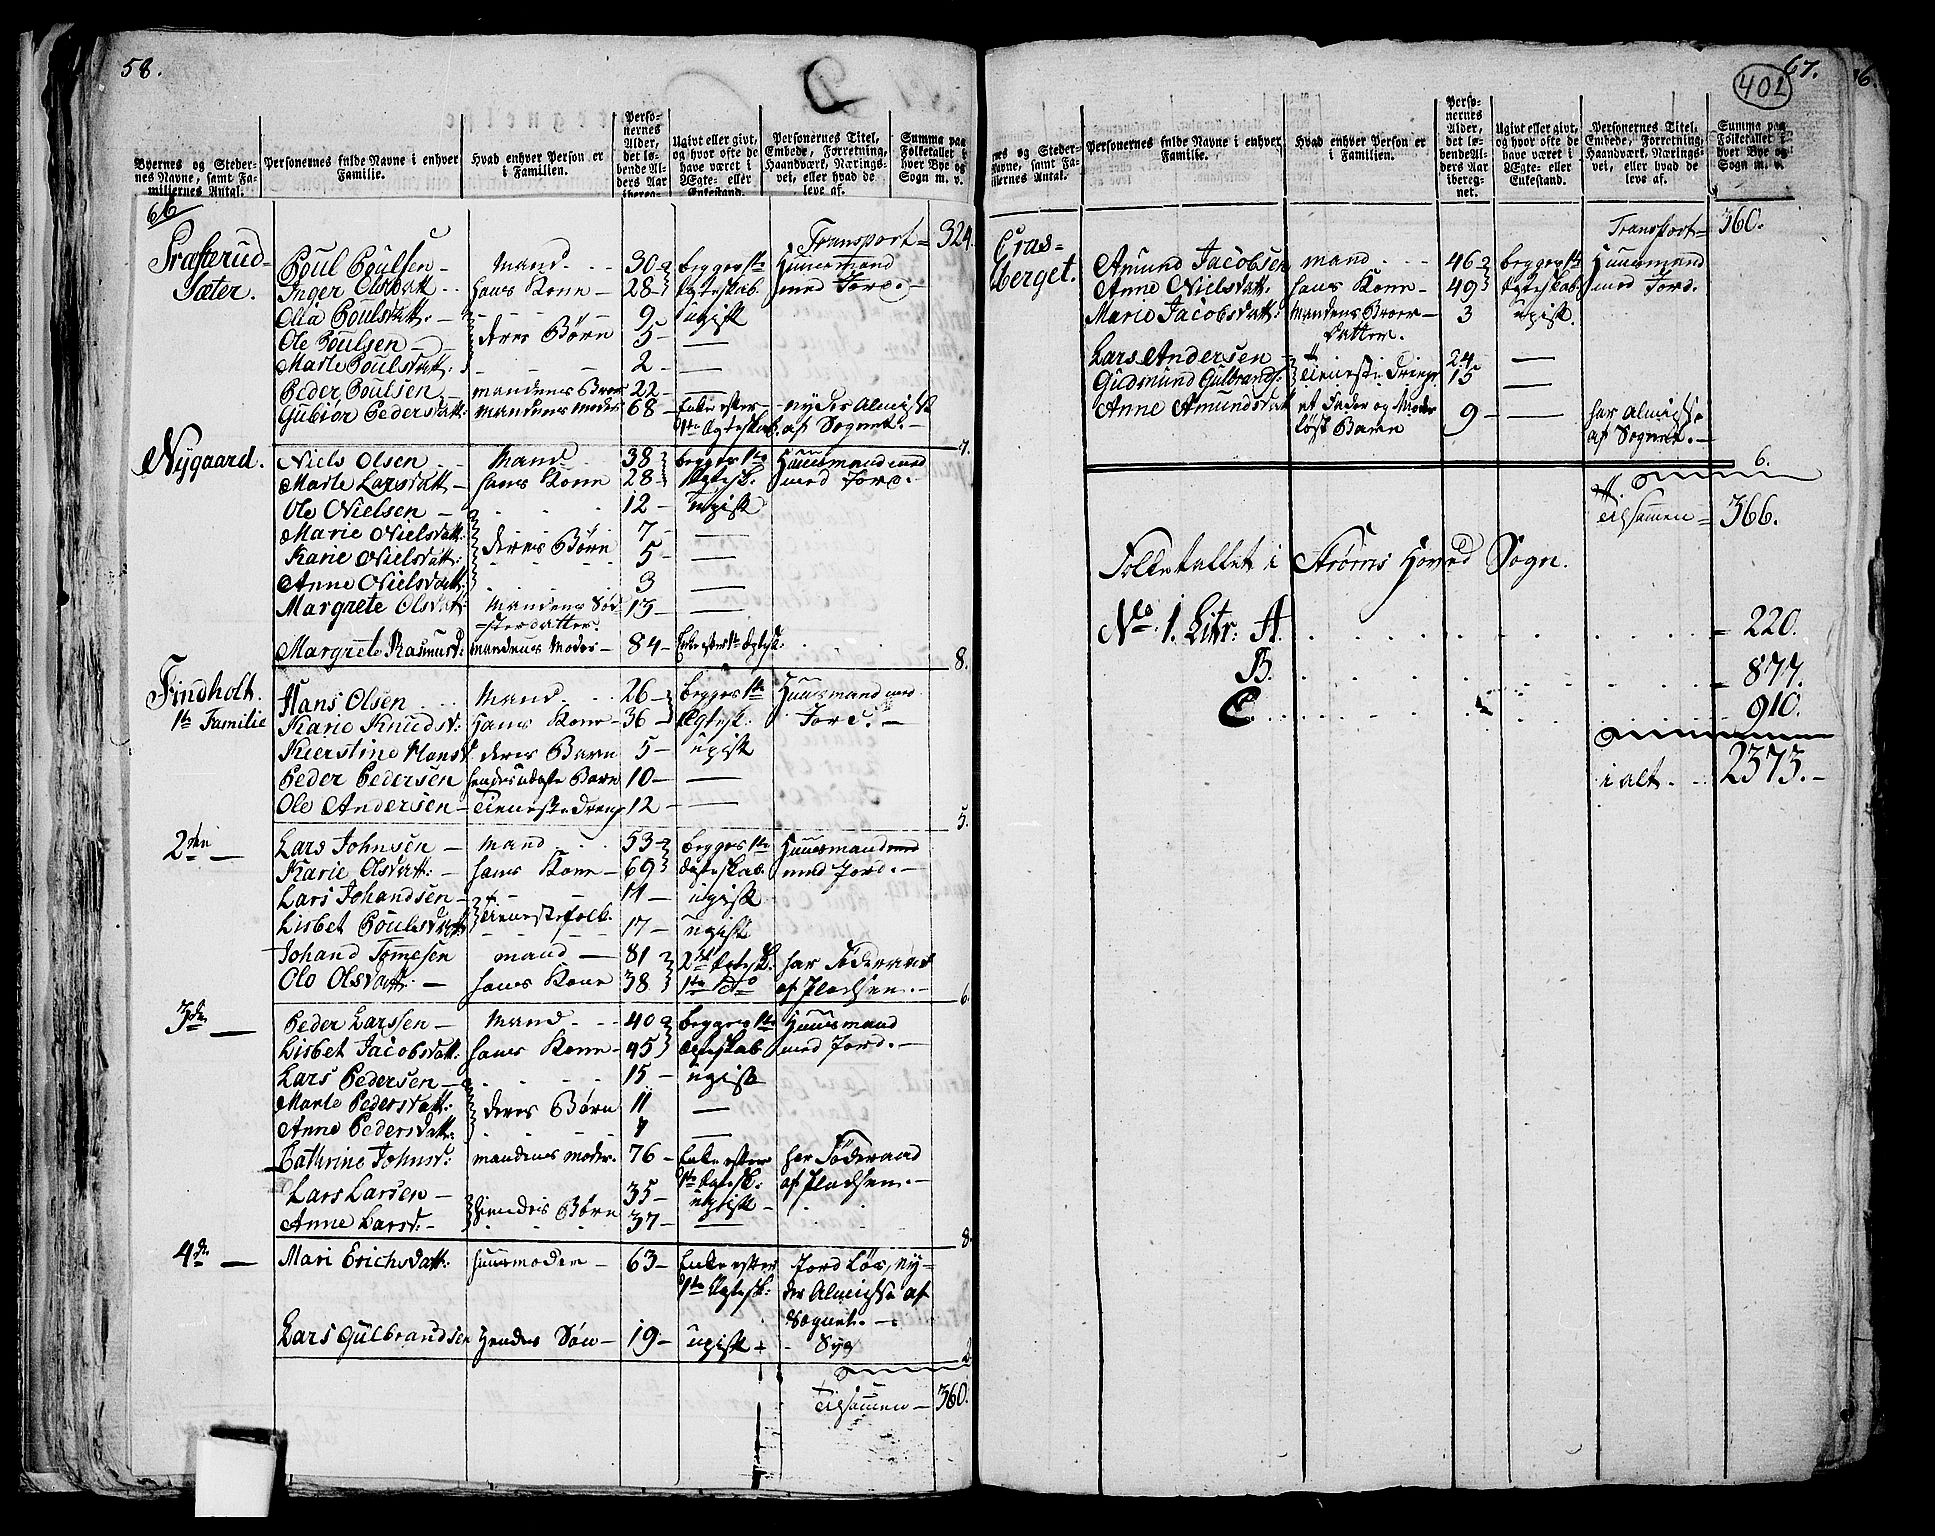 58.
Byernes og Stedernes Navne, samt Familiernes Antal.
Personernes fulde Navne i enhver Familie.
Hvad enhver Person er i Familien.
Personernes Alder, det løbende Alders Aar iberegnet.
Ugivt eller givt, og hvor ofte de have været i Ægte- eller Enkestand.
Personernes Titel, Embede, Forretning, Haandværk, Næringsvei, eller hvad de leve af.
Summa paa Folketallet i hver Bye og Sogn m. v.
66
Transport = 324.
Præsterud-Sæter.
Poul Poulsen – Mand 30 begges 1te Huusmand
Inger Olsdatt. hans Kone – 28 Ægteskab med Jord. –
Olia Poulsdatt: – 9 – ugift
Ole Poulsen – deres Børn 5 –
Marte Poulsdatt: 2 –
Peder Poulsen – mandens Broer 22 –
Gubior Pedersdatt: mandens moder 68 – Enke efter nyder Almisse
1te Ægteskab. af Sognet. –
7.
Nygaard.
Niels Olsen Mand 38 begges 1te Huusmand med
Marte Larsdatt – hans Kone 28 Ægtesk. med Jord. –
Ole Nielsen – 12 – ugift
Marie Nielsdatt: 7 –
Karie Nielsdatt: deres Børn 5 –
Anne Nielsdatt: 3 –
Margrete Olsdatt: Mandens Sø- 13 –
sterdatter.
Margrete Rasmusd: mandens Moder – 84 – Enke efter 1te Ægtesk.
8.
Findholt.
1te Familie
Hans Olsen Mand 26 – begges 1te Huusmand med
Karie Knudsd: hans Kone – 36 – Ægtesk: Jord. –
Kierstine Hansd. deres Barn 5 – ugift
Peder Pedersen hendes uægte Barn 10 –
Ole Andersen – Tieneste Dreng 12 –
5.
2den –
Lars Johnsen – Mand 53 – begges 1te Huusmand med
Karie Olsdatt: – hans Kone – 69 Ægteskab. med Jord. –
Lars Johandsen – 14 – ugift
Lisbet Poulsdatt: Tienestefolk. 17 – ugift
Johand Tomesen mand – 81 2det Ægtesk. har Føderaad
Ole Olsdatt: – hans Kone 38 1te Do af Pladsen. –
6.
3de –
Peder Larssen – Mand 40 begges 1te Huusmand
Lisbet Jacobsdatt: hans Kone – 45 Ægteskab med Jord. –
Lars Pedersen – 15 – ugift
Marte Pedersdatt: deres Børn 11 –
Anne Pedersdatt: –
Cathrine Johnsd: mandens moder. 76 – Enke efter har Føderaad
1te Ægtesk: af Pladsen. –
Lars Larsen – hendes Børn 35 – ugift –
Anne Larsd: – 37 –
8.
4de –
Mari Erichsdatt: Huusmoder – 63 – Enke efter Jord løs, ny-
1te Ægtesk: der Almisse af
Sognet. –
Lars Gulbrandsen Hendes Søn – 19 – ugift Syg
2
Tilsamen – 360.
67.
401
Personernes fulde Navne i enhver Familie.
Hvad enhver Person er i Familien.
Personernes Alder, det løbende Alders Aar iberegnet.
Ugivt eller givt, og hvor ofte de have været i Ægte- eller Enkestand.
Personernes Titel, Embede, Forretning, Haandværk, Næringsvei, eller hvad de leve af.
Summa paa Folketallet i hver Bye og Sogn m. v.
Transport = 360.
Crasberget.
Amund Jacobsen mand 46 begges 1te Huusmand
Anne Nielsdatt. hans Kone – 49 Ægteskab. med Jord.
Marie Jacobsdatt: mandens Broer- 3 ugift.
Datter.
Lars Andersen – 24 –
Gudsmund Gulbrands: Tieneste Drenge 15 –
Anne Amundsdatt et Fader og Moder 9 – har Almisse
løst Barn af Sognet. –
6.
Tilsamen = 366.
Folketallet i Strøms Hoved Sogn.
No. 1. Litr: A. = 220.
B. = 877.
C. 910.
i alt 2373. –